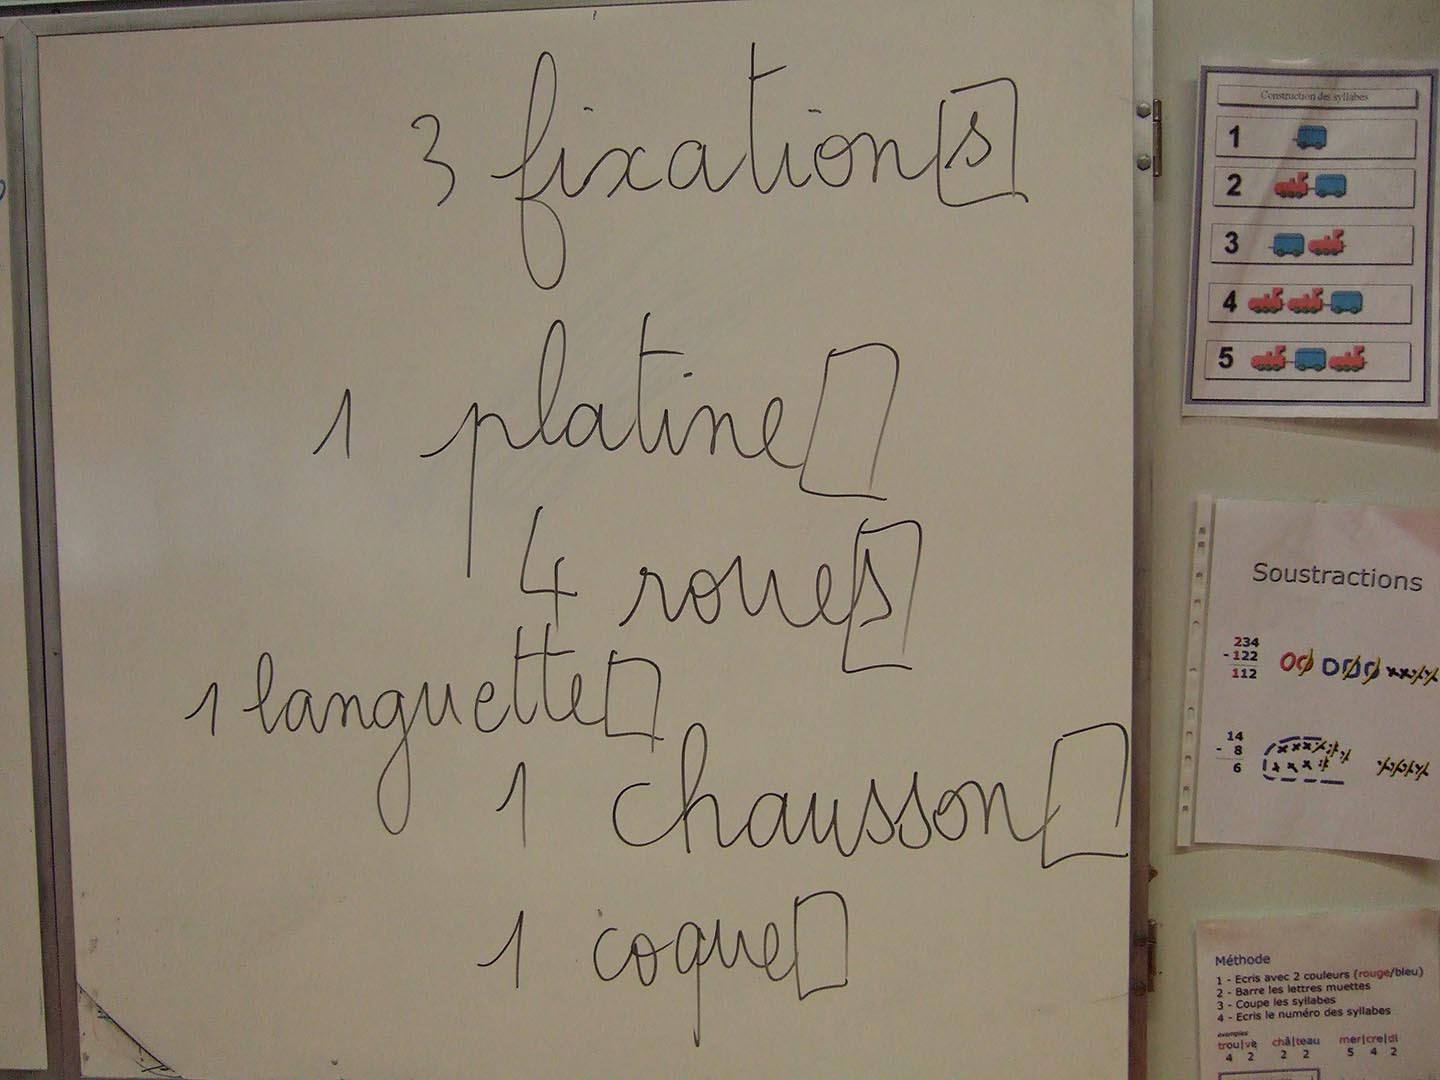 3 fixations
1 platine
4 roues
1 languette
1 chausson
1 coque
Construction des syllabes
1
2
3
4
5
Soustractions
234
- 122
112
14
- 8
6
Méthode
1 - Ecris avec 2 couleurs (rouge/bleu)
2 - Barre les lettres muettes
3 - Coupe les syllabes
4 - Ecris le numéro des syllabes
exemples
trou|ve châ|teau mer|cre|di
4 2 2 2 5 4 2